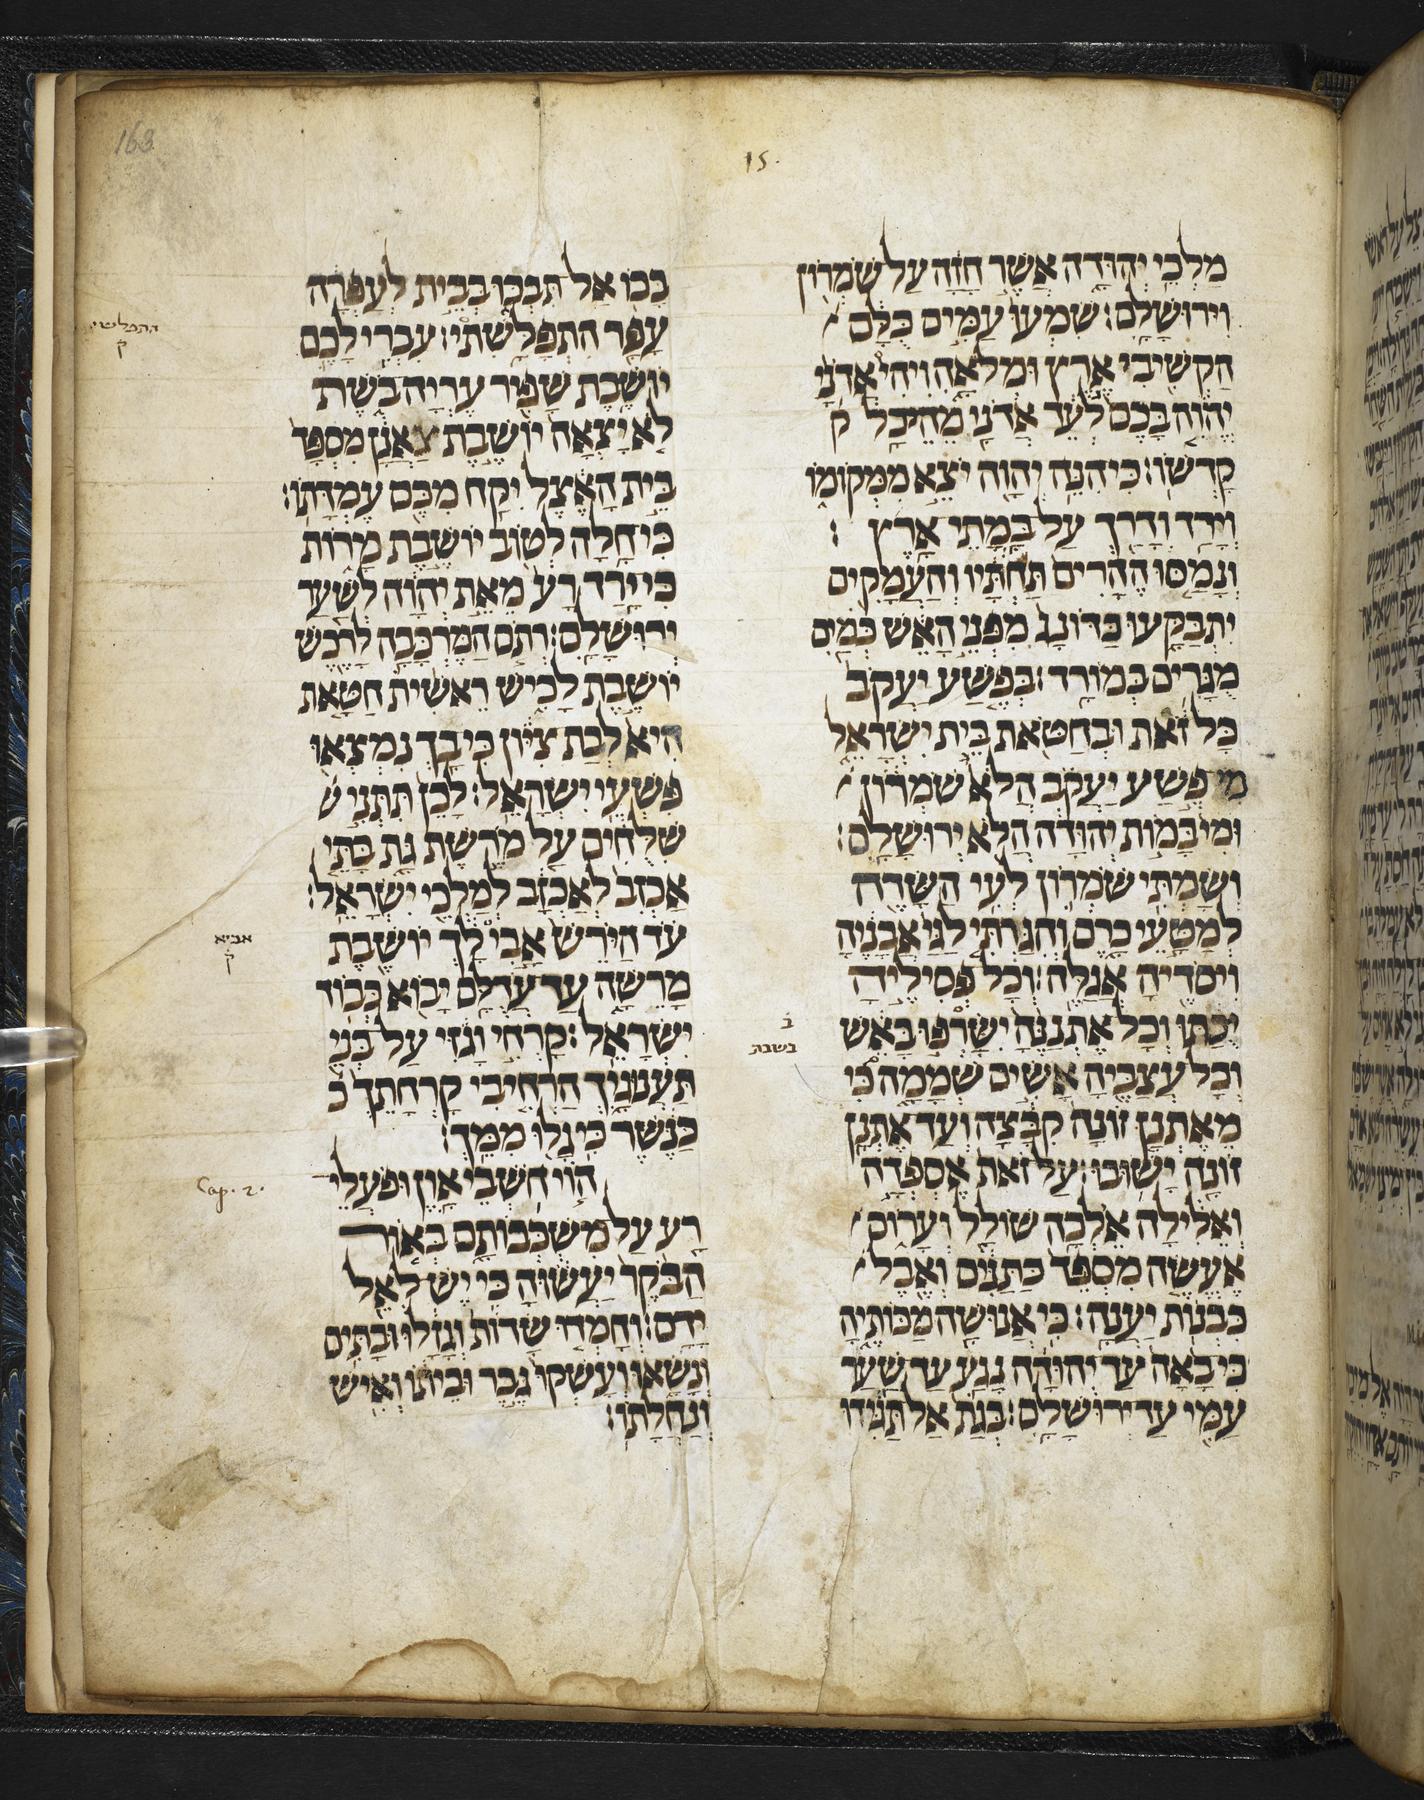 163
15.
מַלְכֵי יְהוּדָה אֲשֶׁר חָזָה עַל שֹׁמְרוֹן
וִירוּשָׁלִָם׃ שִׁמְעוּ עַמִּים כֻּלָּם
הַקְשִׁיבִי אֶרֶץ וּמְלֹאָהּ וִיהִי אֲדֹנָי
יֱהֹוִה בָּכֶם לְעֵד אֲדֹנָי מֵהֵיכַל ק
קָדְשׁוֹ׃ כִּי הִנֵּה יְהוָה יֹצֵא מִמְּקוֹמוֹ
וְיָרַד וְדָרַךְ עַל בָּמֳתֵי אָרֶץ ׃
וְנָמַסּוּ הֶהָרִים תַּחְתָּיו וְהָעֲמָקִים
יִתְבַּקָּעוּ כַּדּוֹנַג מִפְּנֵי הָאֵשׁ כְּמַיִם
מֻגָּרִים בְּמוֹרָד׃ בְּפֶשַׁע יַעֲקֹב
כָּל זֹאת וּבְחַטֹּאת בֵּית יִשְׂרָאֵל
מִי פֶשַׁע יַעֲקֹב הֲלֹא שֹׁמְרוֹן
וּמִי בָּמוֹת יְהוּדָה הֲלֹא יְרוּשָׁלִָם׃
וְשַׂמְתִּי שֹׁמְרוֹן לְעִי הַשָּׂדֶה
לְמַטָּעֵי כָרֶם וְהִגַּרְתִּי לַגַּי אֲבָנֶיהָ
וִיסֹדֶיהָ אֲגַלֶּה׃ וְכָל פְּסִילֶיהָ
יֻכַּתּוּ וְכָל אֶתְנַנֶּהָ יִשָּׂרְפוּ בָאֵשׁ
וְכָל עֲצַבֶּיהָ אָשִׂים שְׁמָמָה כִּי
מֵאֶתְנַן זוֹנָה קִבָּצָה וְעַד אֶתְנַן
זוֹנָה יָשׁוּבוּ׃ עַל זֹאת אֶסְפְּדָה
וְאֵלִילָה אֵלְכָה שׁוֹלָל וְעָרוֹם
אֶעֱשֶׂה מִסְפֵּד כַּתַּנִּים וְאֵבֶל
כִּבְנוֹת יַעֲנָה׃ כִּי אֲנוּשָׁה מַכּוֹתֶיהָ
כִּי בָאָה עַד יְהוּדָה נָגַע עַד שַׁעַר
עַמִּי עַד יְרוּשָׁלִָם׃ בְּגַת אַל תַּגִּידוּ
ב
בשבת
בָּכוֹ אַל תִּבְכּוּ בְּבֵית לְעַפְרָה
עָפָר הִתְפַּלָּשְׁתִּי׃ עִבְרִי לָכֶם
יוֹשֶׁבֶת שָׁפִיר עֶרְיָה בֹשֶׁת
לֹא יָצְאָה יוֹשֶׁבֶת צַאֲנָן מִסְפַּד
בֵּית הָאֵצֶל יִקַּח מִכֶּם עֶמְדָּתוֹ׃
כִּי חָלָה לְטוֹב יוֹשֶׁבֶת מָרוֹת
כִּי יָרַד רָע מֵאֵת יְהוָה לְשַׁעַר
יְרוּשָׁלִָם׃ רְתֹם הַמֶּרְכָּבָה לָרֶכֶשׁ
יוֹשֶׁבֶת לָכִישׁ רֵאשִׁית חַטָּאת
הִיא לְבַת צִיּוֹן כִּי בָךְ נִמְצְאוּ
פִּשְׁעֵי יִשְׂרָאֵל׃ לָכֵן תִּתְּנִי שׁ
שִׁלּוּחִים עַל מֹרֶשֶׁת גַּת בָּתֵּי
אַכְזִב לְאַכְזָב לְמַלְכֵי יִשְׂרָאֵל׃
עֹד הַיֹּרֵשׁ אָבִי לָךְ יוֹשֶׁבֶת
מָרֵשָׁה עַד עֲדֻלָּם יָבוֹא כְּבוֹד
יִשְׂרָאֵל׃ קָרְחִי וָגֹזִּי עַל בְּנֵי
תַּעֲנוּגָיִךְ הַרְחִיבִי קָרְחָתֵךְ כ
כַּנֶּשֶׁר כִּי גָלוּ מִמֵּךְ׃
הוֹי חֹשְׁבֵי אָוֶן וּפֹעֲלֵי
רָע עַל מִשְׁכְּבוֹתָם בְּאוֹר
הַבֹּקֶר יַעֲשׂוּהָ כִּי יֶשׁ לְאֵל
יָדָם׃ וְחָמְדוּ שָׂדוֹת וְגָזָלוּ וּבָתִּים
וְנָשָׂאוּ וְעָשְׁקוּ גֶּבֶר וּבֵיתוֹ וְאִישׁ
וְנַחֲלָתוֹ׃
התפלשי
ק
אביא
ק
Cap. 2.